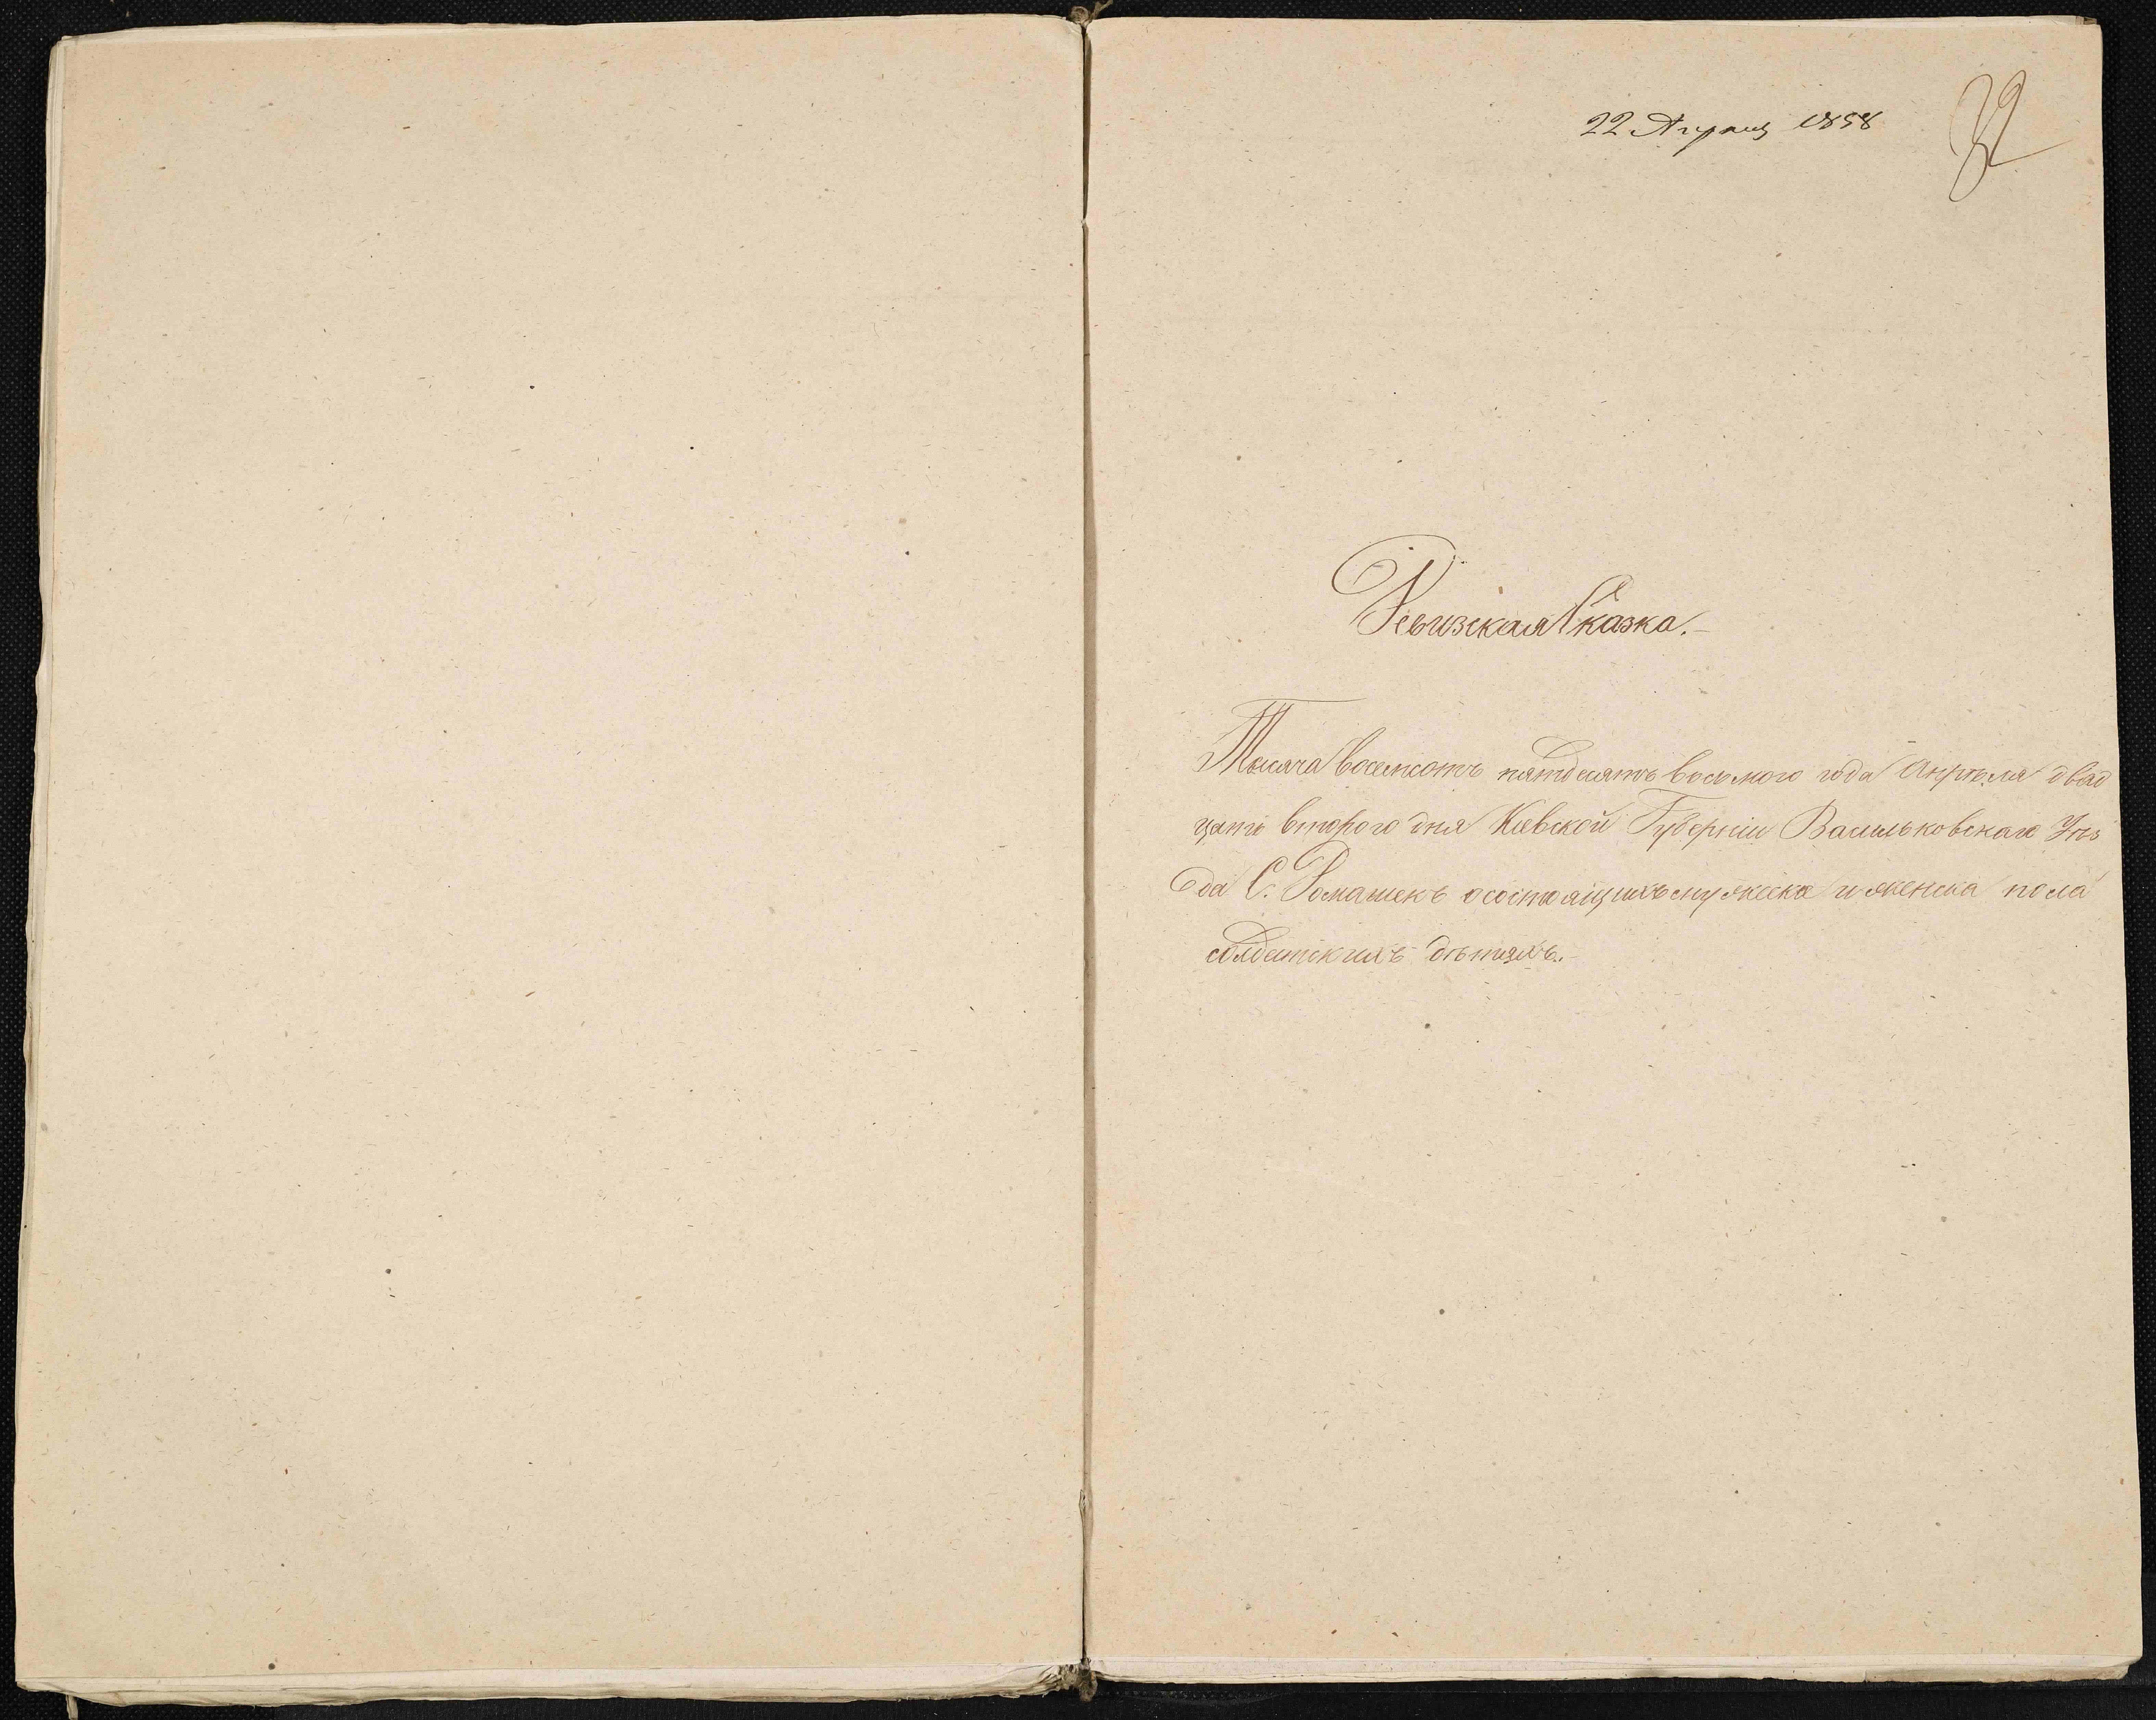 22 Апреля 1858
32
Ревизская Сказка.-
Тысяча восемсотъ пятдесятъ восьмого года Апрѣля двад
цать второго дня Кіевской Губерніи Васильковскаго Уѣз
да С. Ромашекъ о состоящихъ мужеска и женска пола
солдатскихъ дѣтяхъ.-